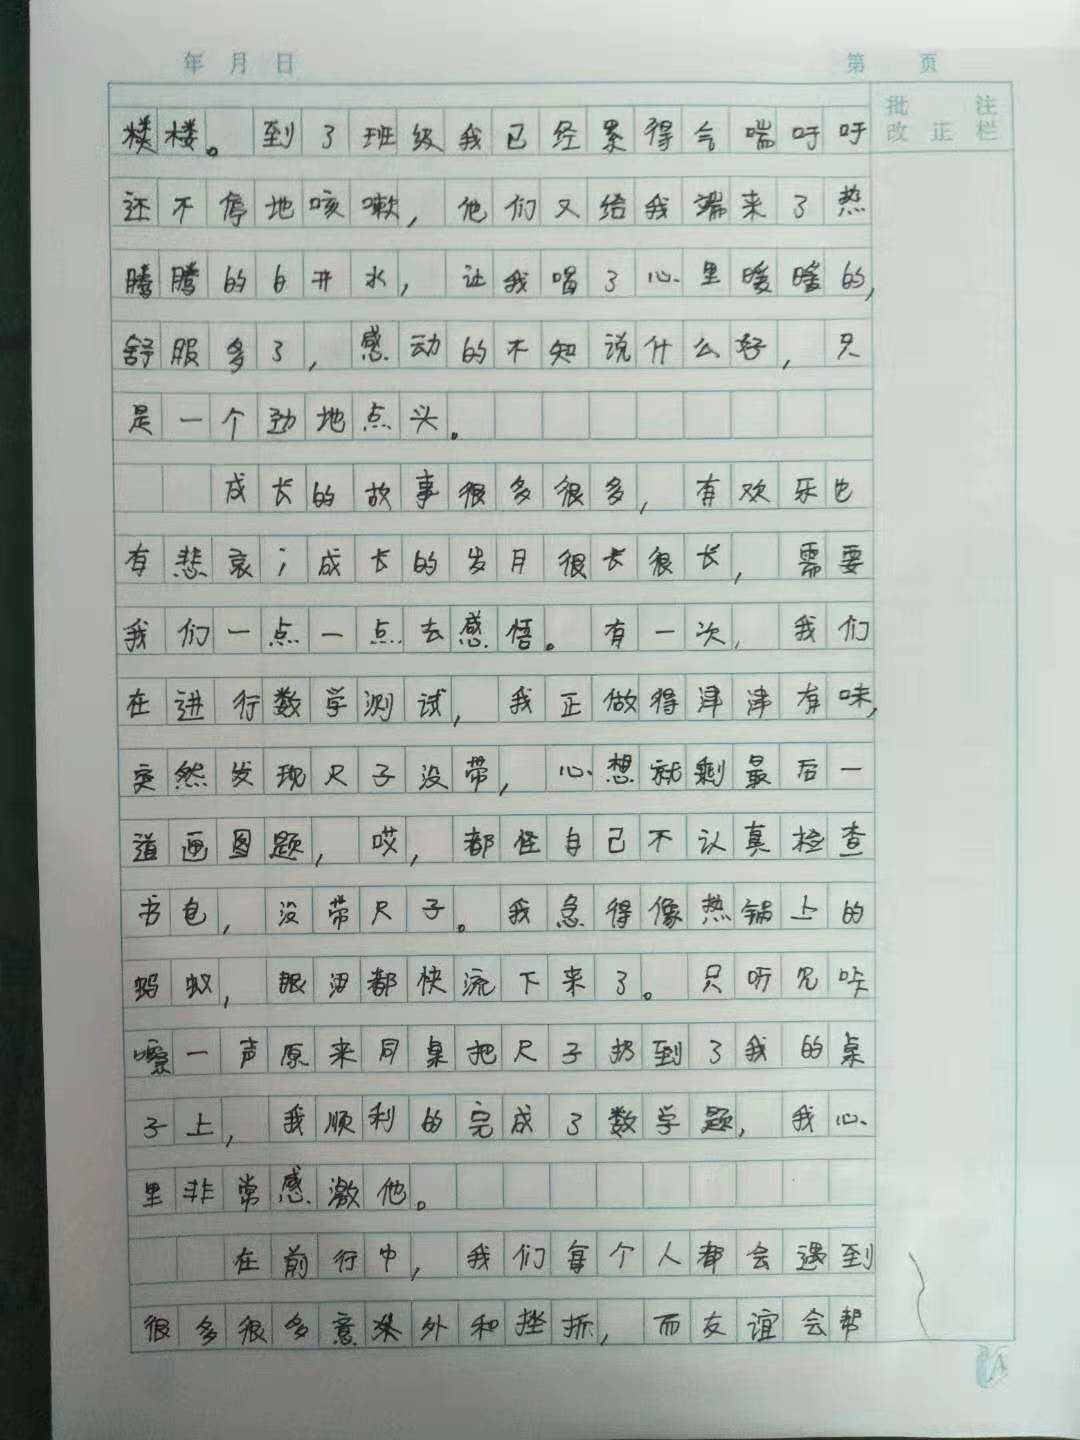 年 月 日
第 页
批 注
改 正 栏
楼楼。到了班级我已经累得气喘吁吁
还不停地咳嗽，他们又给我端来了热
腾腾的白开水，让我喝了心里暖暖的，
舒服多了，感动的不知说什么好，只
是一个劲地点头。
成长的故事很多很多，有欢乐也
有悲哀；成长的岁月很长很长，需要
我们一点一点去感悟。有一次，我们
在进行数学测试，我正做得津津有味，
突然发现尺子没带，心想就剩最后一
道画图题，哎，都怪自己不认真检查
书包，没带尺子。我急得像热锅上的
蚂蚁，眼泪都快流下来了。只听见咔
嚓一声原来同桌把尺子扔到了我的桌
子上，我顺利的完成了数学题，我心
里非常感激他。
在前行中，我们每个人都会遇到
很多很多意外和挫折，而友谊会帮